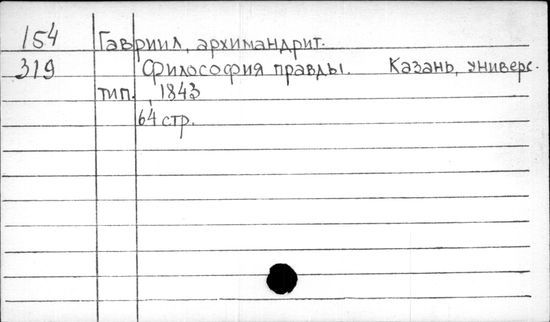 154 Гавриил, архимандрит.
319 Философия правды. Казань, универс.
тип., 1843
64 стр.